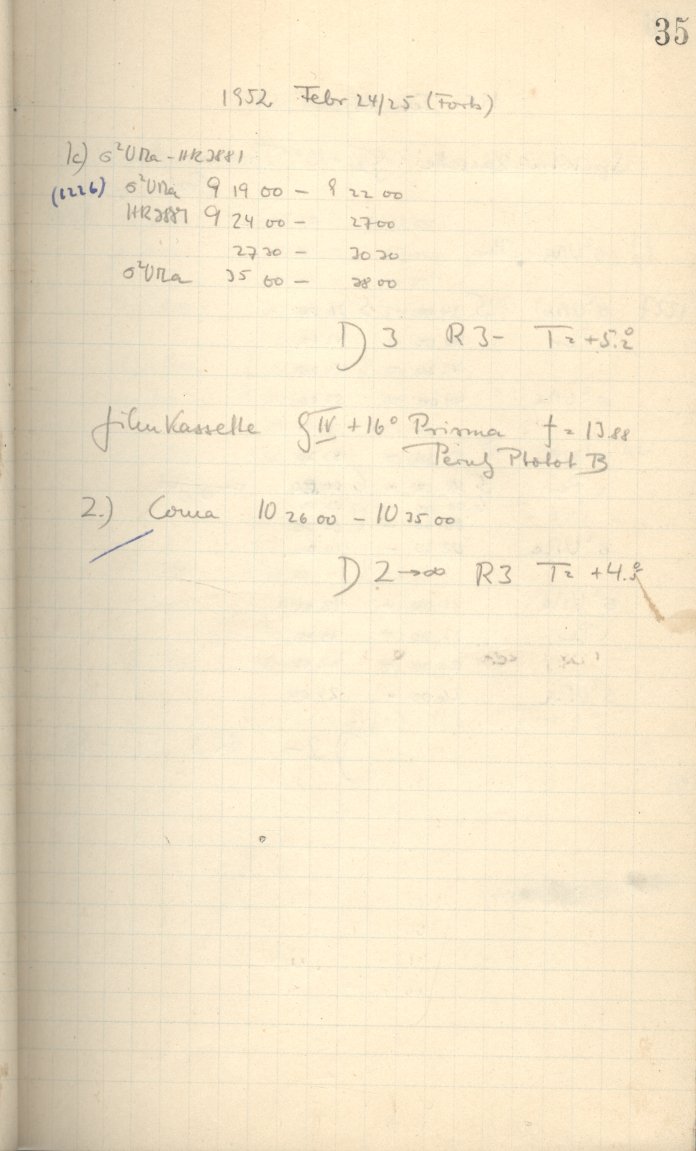 35
1952 Febr 24/25 (Forts)
1c) σ²UMa - HR3881
(1226) σ²UMa 9 19 00 - 9 22 00
HR3881 9 24 00 - 27 00
27 30 - 30 30
σ²UMa 35 00 - 38 00
D 3 R 3- T = +5.2°
Filmkassette IV +16° Prisma f = 13.88
Perutz B
2.) Coma 10 26 00 - 10 35 00
D 2→∞ R3 T = +4.5°